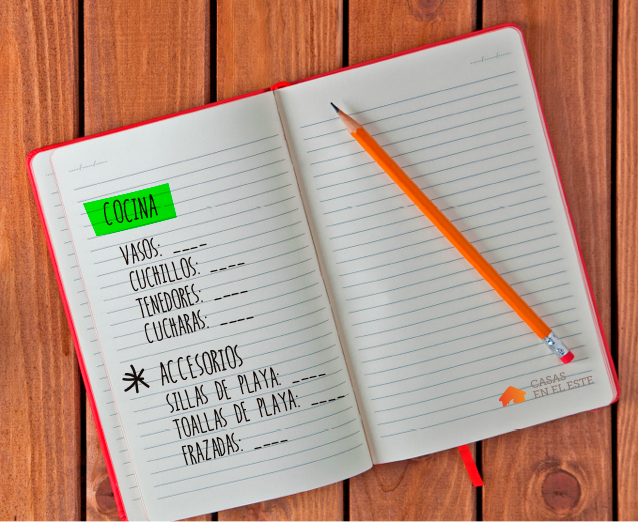 COCINA
VASOS: ____
CUCHILLOS: ____
TENEDORES: ____
CUCHARAS: ____
* ACCESORIOS
SILLAS DE PLAYA: ____
TOALLAS DE PLAYA: ____
FRAZADAS: ____
CASAS
EN EL ESTE